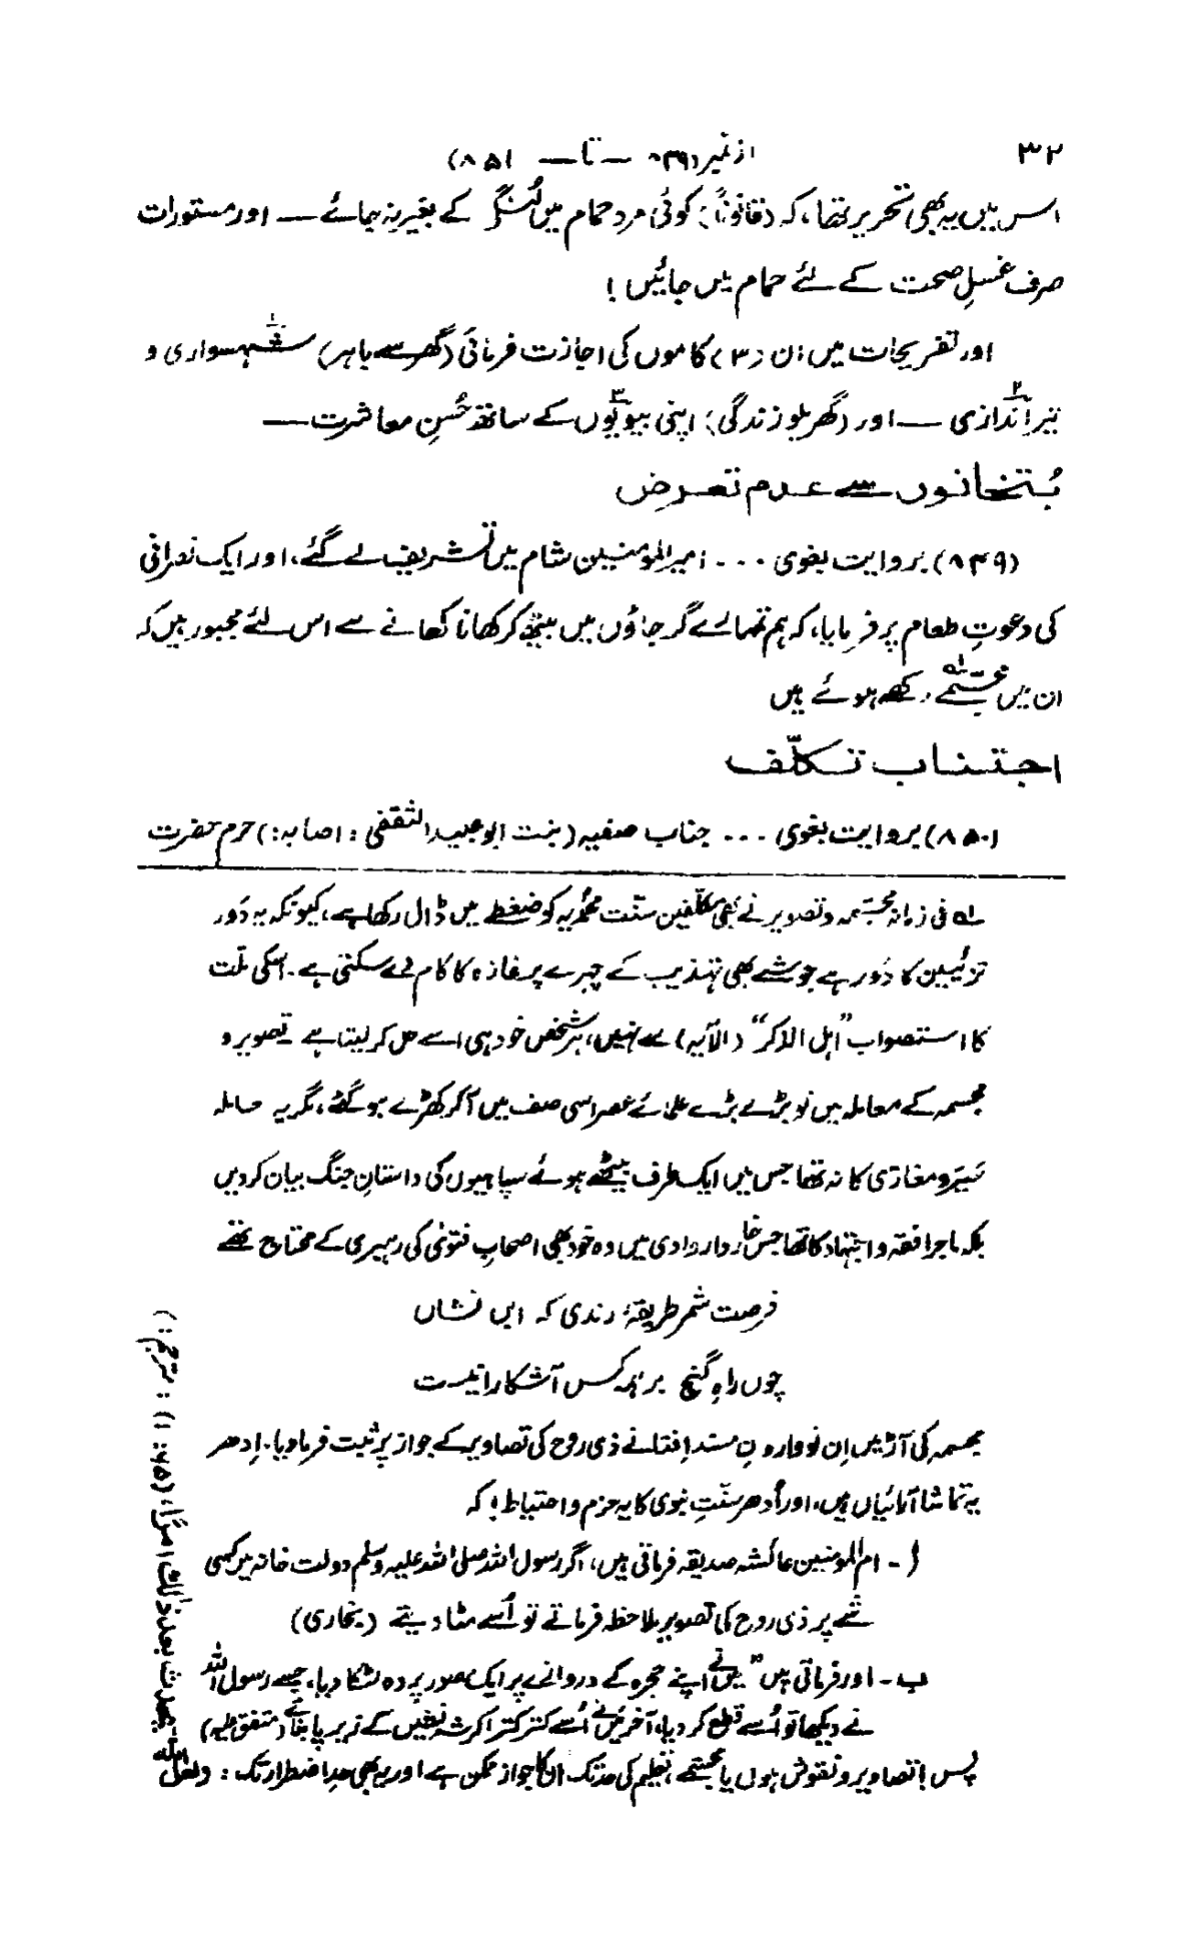 ۳۲
از نمبر (۸۴۹ — تا — ۸۵۱)
اس میں یہ بھی تحریر تھا، کہ (قانوناً) کوئی مرد حمام میں لُنگی کے بغیر نہ جائے — اور مستورات
صرف غسلِ صحت کے لئے حمام میں جائیں !
اور تفریحات میں ان (۳) کاموں کی اجازت فرمائی (گھر سے باہر) شہسواری۱ و
تیر اندازی۲ — اور (گھریلو زندگی) اپنی بیویوں۳ کے ساتھ حُسنِ معاشرت —
بُتخانوں سے عدم تعرض
(۸۴۹) بروایت بغوی ... امیر المؤمنین شام میں تشریف لے گئے، اور ایک نصرانی
کی دعوتِ طعام پر فرمایا، کہ ہم تمہارے گرجاؤں میں بیٹھ کر کھانا کھانے سے اس لئے مجبور ہیں کہ
ان میں مجسمے؎۱ رکھے ہوئے ہیں
اجتناب تکلّف
(۸۵۰) بروایت بغوی ... جناب صفیہ (بنت ابو عبید الثقفی : اصابہ:) حرم حضرت
؎۱ فی زمانہ مجسّمہ و تصویر نے بھی مکلّفین سنّت محمدیہ کو ضغطے میں ڈال رکھا ہے، کیونکہ یہ دَور
تزئیین کا دَور ہے جو شے بھی تہذیب کے چہرے پر غازہ کا کام دے سکتی ہے۔ اسکی حلت
کا استصواب "اہل الذکر" (الآیہ) سے نہیں، ہر شخص خود ہی اسے حل کر لیتا ہے تصویر و
مجسمہ کے معاملہ میں تو بڑے بڑے علمائے عصر اسی صف میں آکر کھڑے ہو گئے، مگر یہ معاملہ
سَیر و مغازی کا نہ تھا جس میں ایک طرف بیٹھے ہوئے سپاہیوں کی داستانِ جنگ بیان کر دیں
بلکہ ماجرا فقہ و اجتہاد کا تھا جس خار دار وادی میں وہ خود بھی اصحابِ فتوٰی کی رہبری کے محتاج تھے
فرصت شمر طریقۂ رندی کہ ایں نشاں
چوں راہِ گنج بر ہمہ کس آشکارا نیست
مجسمہ کی آڑ میں اِن نو واردونِ مسند اِفتا نے ذی روح کی تصاویر کے جواز پر ثبت فرما دیا۔ اِدھر
یہ تماشا آرائیاں ہیں، اور اُدھر سنّتِ نبوی کا یہ حزم و احتیاط ! کہ
ا - ام المومنین عائشہ صدیقہ فرماتی ہیں، اگر رسول اللہ صلی اللہ علیہ وسلم دولت خانہ میں کسی
شے پر ذی روح کی تصویر ملاحظہ فرماتے تو اُسے مٹا دیتے (بخاری)
ب - اور فرماتی ہیں "میں نے اپنے حجرہ کے دروازے پر ایک مصور پردہ لٹکا دیا، جسے رسول اللہ
نے دیکھا تو اُسے قطع کر دیا، آخر میں نے اُسے کتر کترا کر شہ نشیں کے زیر پا بنائے (متفق علیہ)
پس ! تصاویر و نقوش ہوں یا مجسّمے، تعلیم کی حد تک ان کا جواز ممکن ہے اور یہ بھی حدِ اضطرار تک : ولعل اللہ
یحدث بعد ذٰلک امراً، (۶۵ : ۱) : مترجم :)